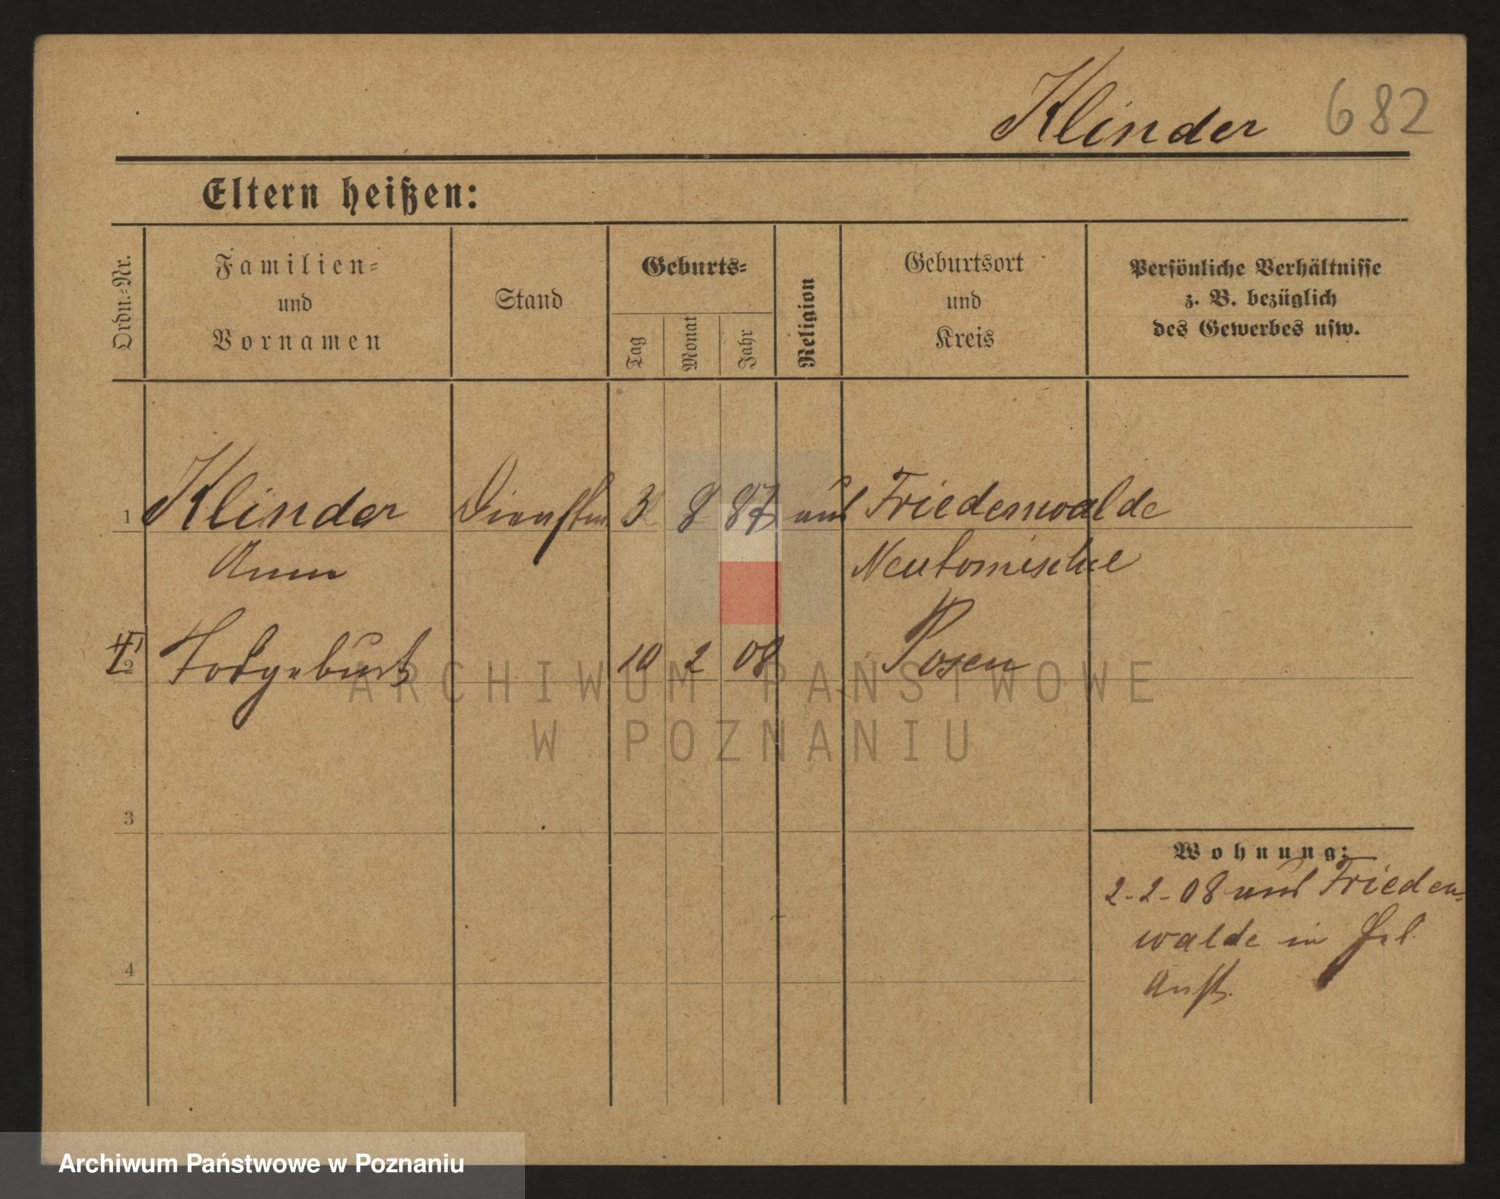 Klinder 682
Eltern heißen:
Ordn.-Nr.
Familien-
und
Vornamen
Stand
Geburts-
Tag
Monat
Jahr
Religion
Geburtsort
und
Kreis
Persönliche Verhältnisse
z. B. bezüglich
des Gewerbes usw.
1 Klinder 3 8 87 Friedenwalde
Anna Neutomischel
2 Todgeburt 10 2 08 Posen
3
4
Wohnung:
2-2-08 aus Frieden-
walde in
Anst.
ARCHIWUM PAŃSTWOWE
W POZNANIU
Archiwum Państwowe w Poznaniu